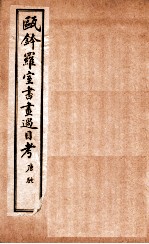 甌鉢羅室書畫過目考 唐駝